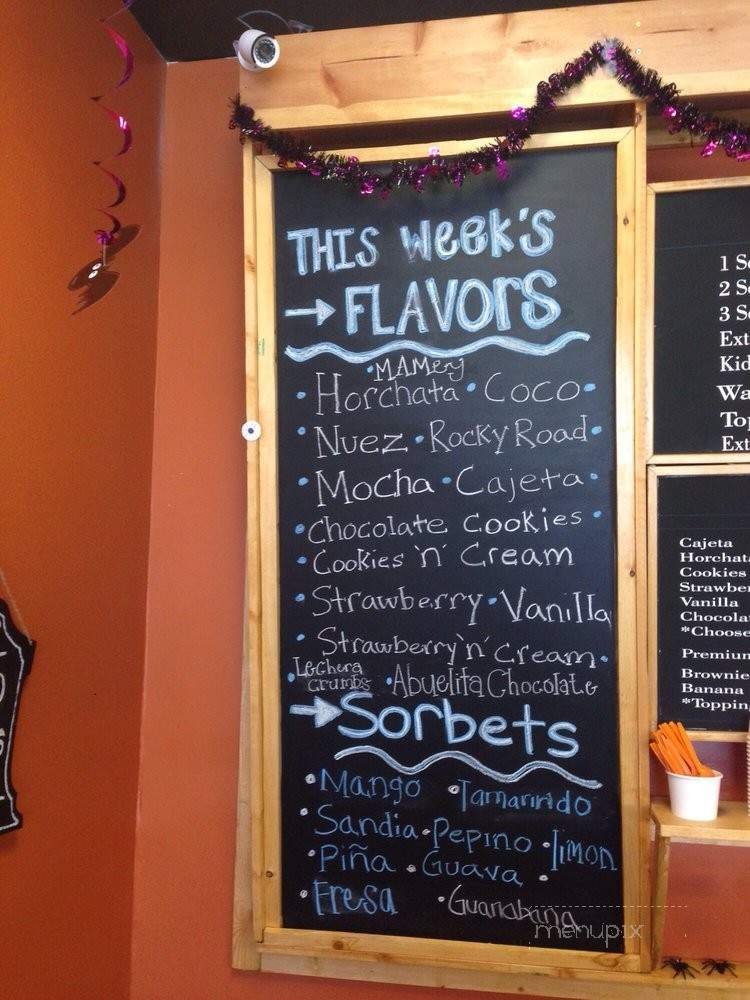 THIS WEEK'S
→ FLAVORS
• MAMEY
• Horchata • Coco •
• Nuez • Rocky Road •
• Mocha • Cajeta •
• Chocolate Cookies •
• Cookies 'n' Cream
• Strawberry • Vanilla
• Strawberry 'n' Cream •
• Lechera Crumbs • Abuelita Chocolate
→ Sorbets
• Mango • Tamarindo
• Sandia • Pepino • limon
• Piña • Guava •
• Fresa • Guanabana
1 S
2 S
3 S
Ext
Kid
Wa
Top
Ext
Cajeta
Horchat
Cookies
Strawber
Vanilla
Chocola
*Choose
Premium
Brownie
Banana
*Toppin
menupix